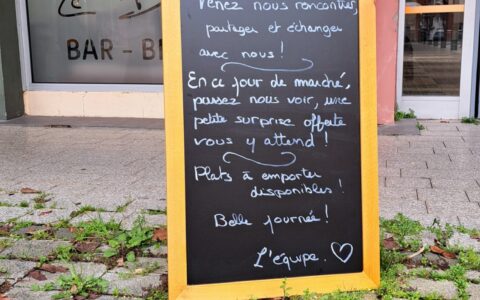 BAR - B
Venez nous rencontrer,
partager et échanger
avec nous !
En ce jour de marché,
passez nous voir, une
petite surprise offerte
vous y attend !
Plats à emporter
disponibles !
Belle journée !
L'équipe.